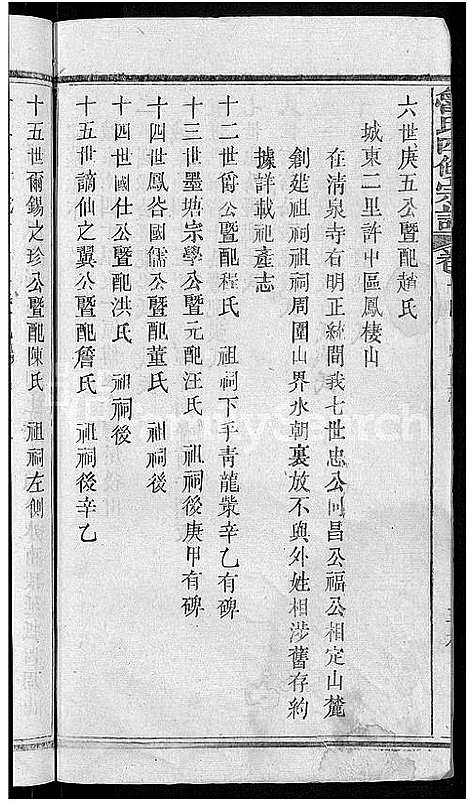 六世庚五公暨配趙氏
城東二里許中區鳳棲山
在清泉寺右明正統間我七世忠公同昌公福公相定山麓
創建祖祠祖祠周圍山界水朝裏放不與外姓相涉舊存約
據詳載祀產志
十二世爵公暨配程氏 祖祠下手靑龍嘴辛乙有碑
十三世墨塘宗學公暨元配汪氏 祖祠後庚甲有碑
十四世鳳谷國儒公暨配董氏 祖祠後
十四世國仕公暨配洪氏 祖祠後
十五世謫仙之翼公暨配詹氏 祖祠後辛乙
十五世爾錫之珍公暨配陳氏 祖祠左側
氏四修宗譜 卷
FamilySearch